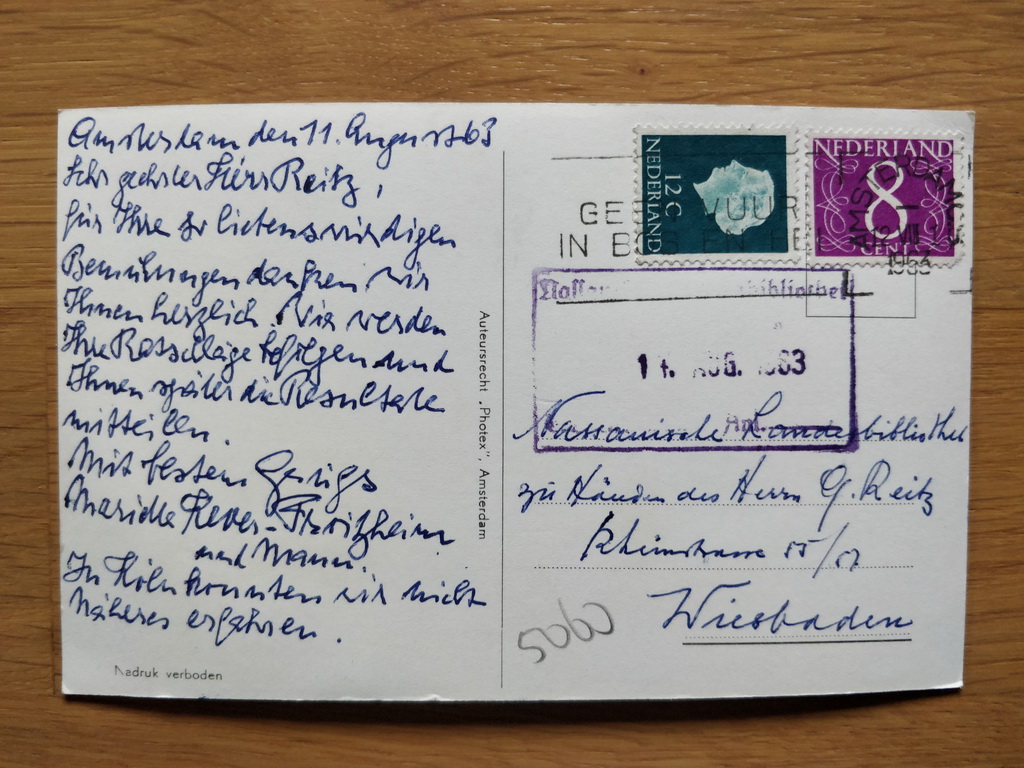 Amsterdam den 11. August 63
Sehr geehrter Herr Reitz,
für Ihre so liebenswürdigen
Bemühungen danken wir
Ihnen herzlich. Wir werden
Ihre Ratschläge befolgen und
Ihnen später die Resultate
mitteilen.
Mit besten
und Mann
In Köln konnten wir nicht
Näheres erfahren.
Nadruk verboden
Auteursrecht „Photex”, Amsterdam
NEDERLAND
12 C
NEDERLAND
8
CENT
AMSTERDAM
1963
GEEN VUUR
IN BOS EN HEI
bibliothek
AUG. 1963
Nassauische Landesbibliothek
zu Händen des Herrn G. Reitz
Rheinstrasse 55/57
Wiesbaden
5060